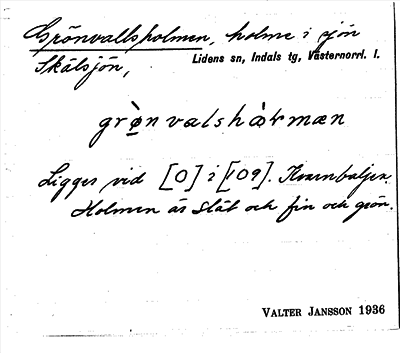 Grönvallsholmen, holme i sjön
Skälsjön, Lidens sn, Indals tg, Västernorrl. l.
grö̀nvalshàrmæn
Ligger vid [0] i [109]. Kvarnbäljen.
Holmen är slät och fin och grön.
VALTER JANSSON 1936